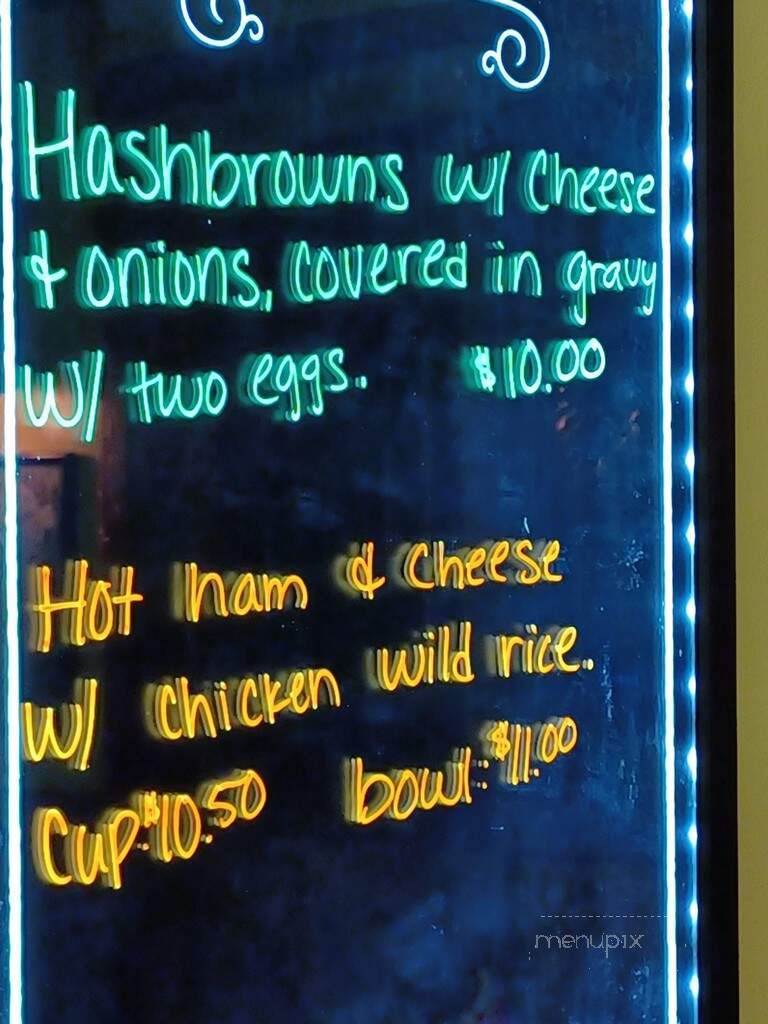 Hashbrowns w/ Cheese
& onions, covered in gravy
w/ two eggs. $10.00
Hot ham & cheese
w/ chicken wild rice.
Cup: $10.50 bowl: $11.00
menupix